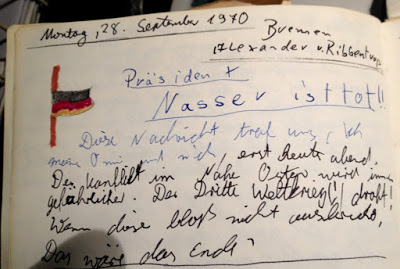 Montag, 28. September 1970
Bremen
Alexander v. Ribbentrop
Präsident
Nasser ist tot!!
Diese Nachricht traf uns, ich
meine Omi und mich, erst heute abend.
Der Konflikt im Nahe Osten wird immer
gefährlicher. Der Dritte Weltkrieg!! droht!
Wenn diese bloß nicht ausbricht,
Das wäre das Ende!